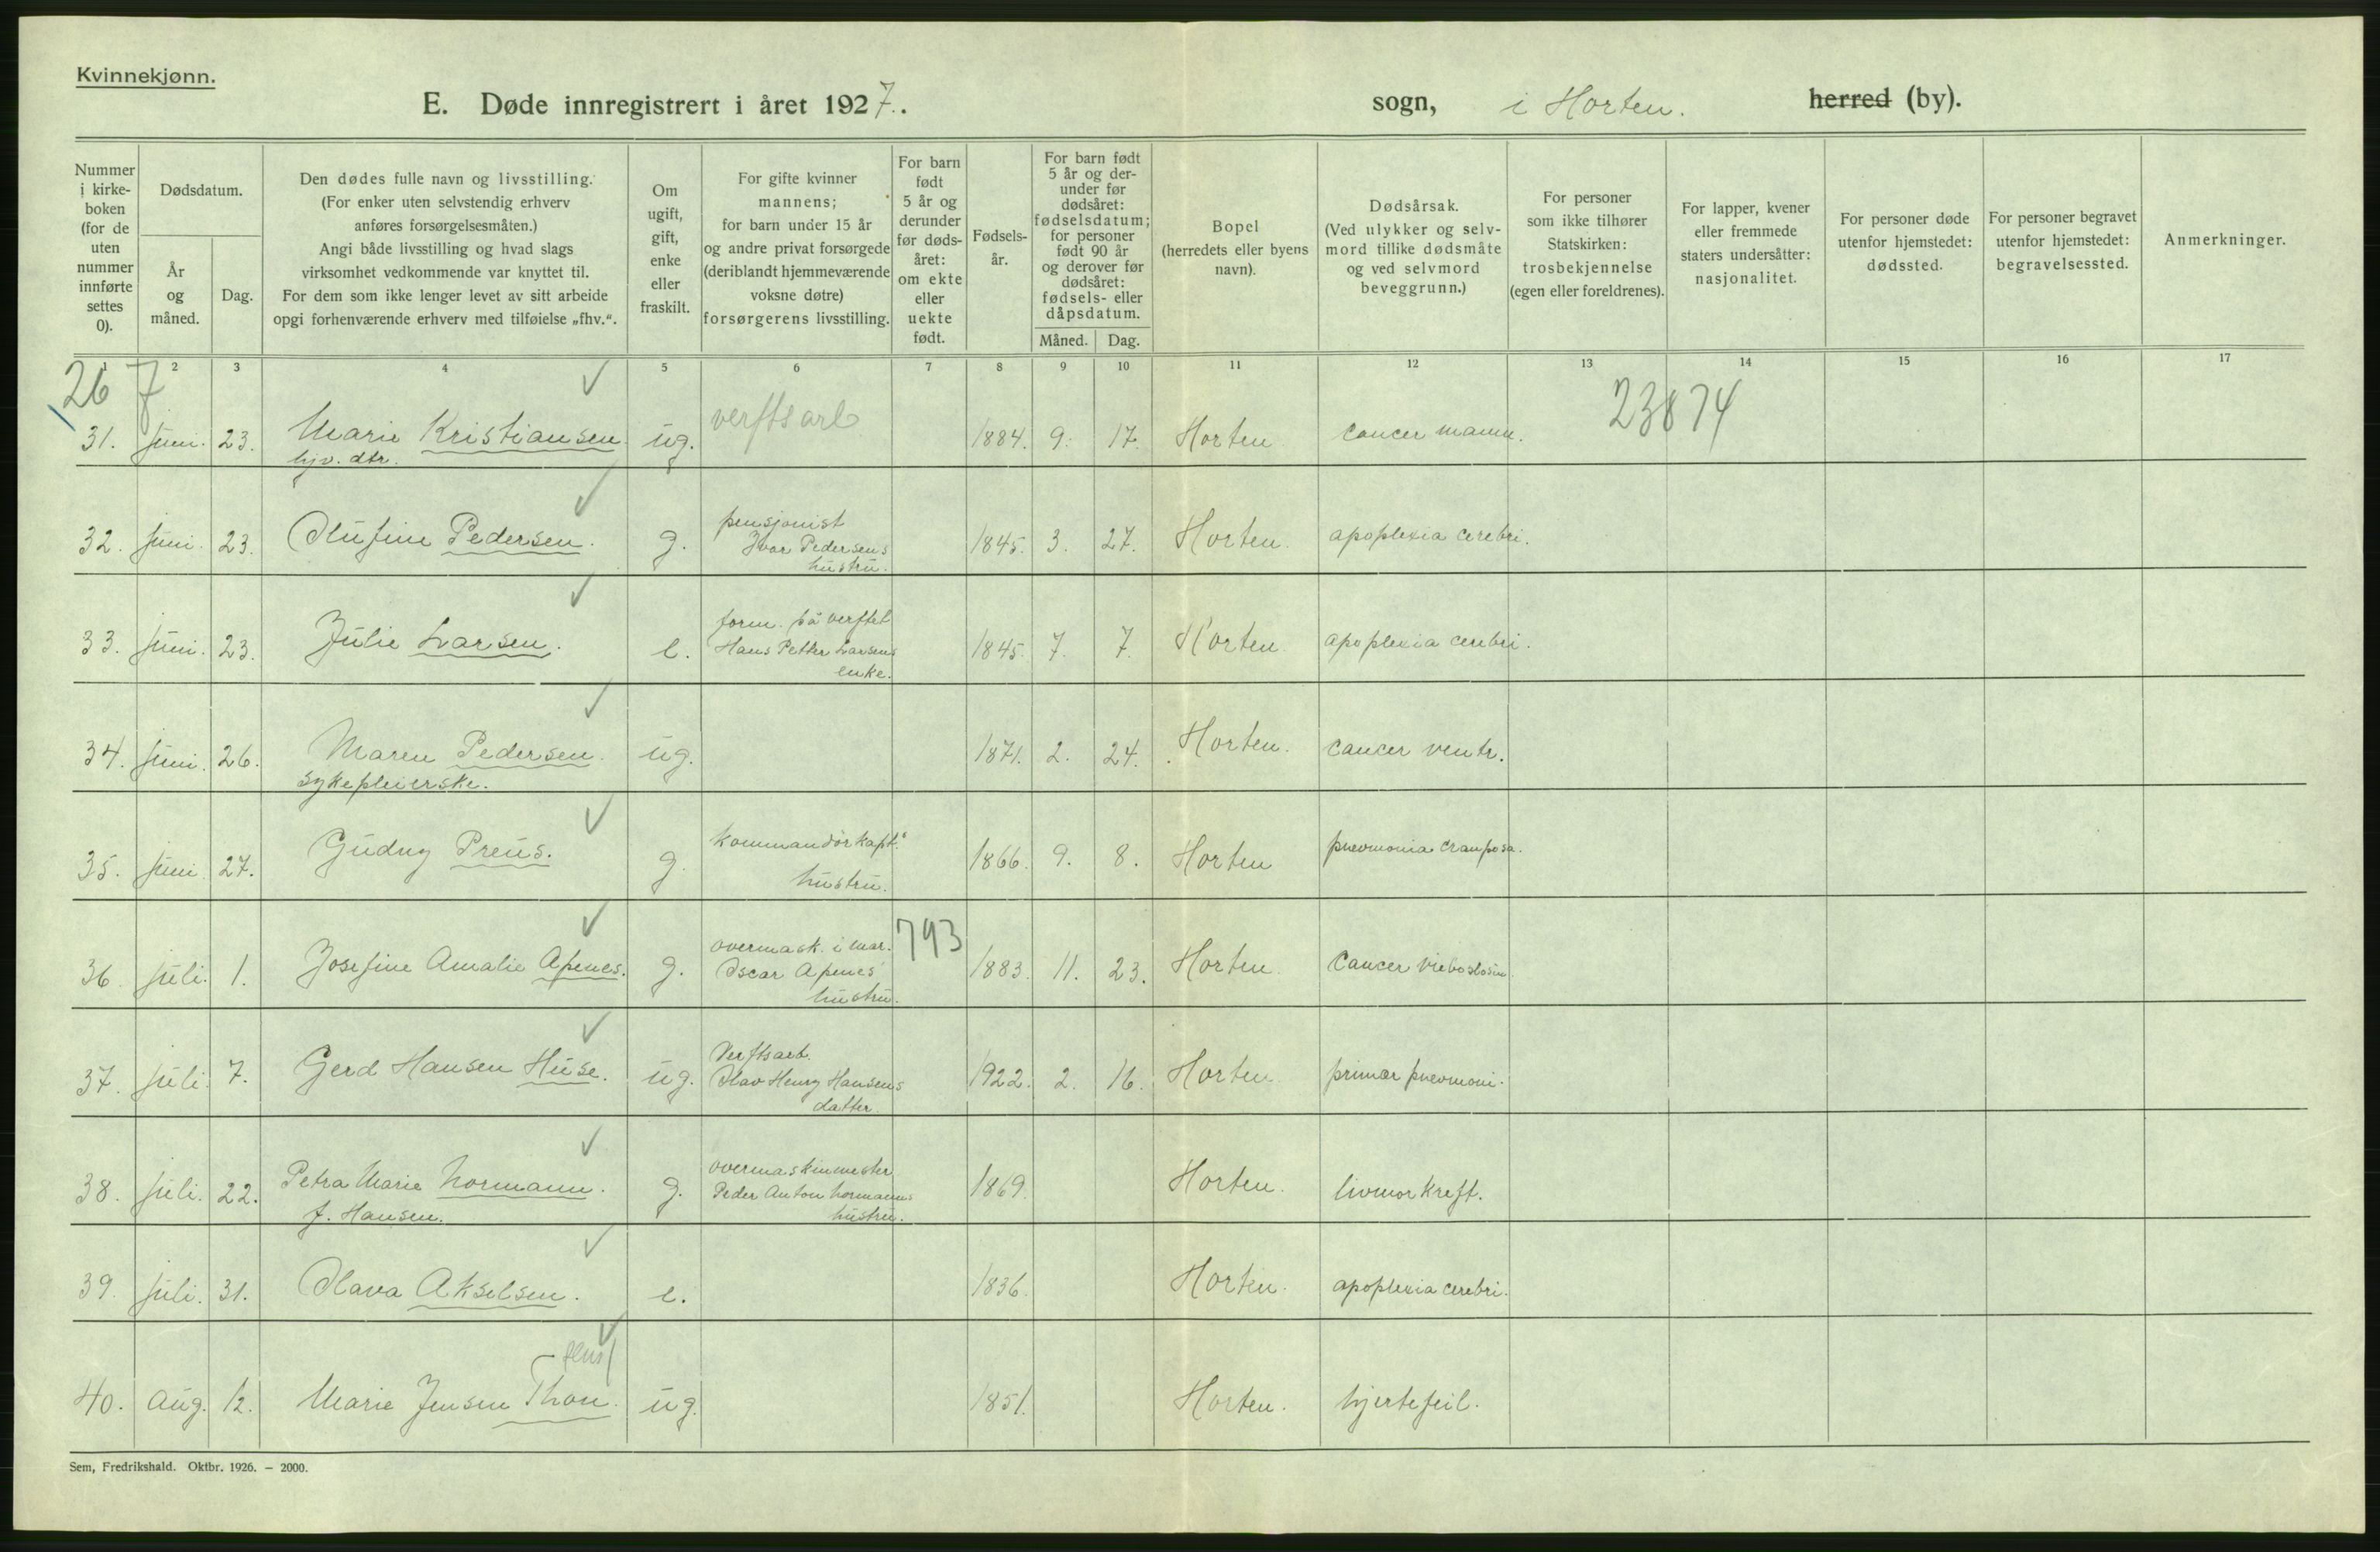 Kvinnekjønn.
E. Døde innregistrert i året 1927.. sogn, i Horten. herred (by).
Nummer i kirke-boken (for de uten nummer innførte settes 0).
Dødsdatum.
År og måned.
Dag.
Den dødes fulle navn og livsstilling.
(For enker uten selvstendig erhverv
anføres forsørgelsesmåten.)
Angi både livsstilling og hvad slags
virksomhet vedkommende var knyttet til.
For dem som ikke lenger levet av sitt arbeide
opgi forhenværende erhverv med tilføielse „fhv.“.
Om ugift, gift, enke eller fraskilt.
For gifte kvinner
mannens;
for barn under 15 år
og andre privat forsørgede
(deriblandt hjemmeværende
voksne døtre)
forsørgerens livsstilling.
For barn født 5 år og derunder før døds-året: om ekte eller uekte født.
Fødsels-år.
For barn født
5 år og der-
under før
dødsåret:
fødselsdatum;
for personer
født 90 år
og derover før
dødsåret:
fødsels- eller
dåpsdatum.
Måned. Dag.
Bopel
(herredets eller byens
navn).
Dødsårsak.
(Ved ulykker og selv-
mord tillike dødsmåte
og ved selvmord
beveggrunn.)
For personer
som ikke tilhører
Statskirken:
trosbekjennelse
(egen eller foreldrenes).
For lapper, kvener
eller fremmede
staters undersåtter:
nasjonalitet.
For personer døde
utenfor hjemstedet:
dødssted.
For personer begravet
utenfor hjemstedet:
begravelsessted.
Anmerkninger.
1 2 3 4 5 6 7 8 9 10 11 12 13 14 15 16 17
26 7 verftsarb 23874
31. juni. 23. Marie Kristiansen ug. 1884. 9. 17. Horten cancer mamm.
hjv. dtr.
32. juni. 23. Olufine Pedersen. g. pensjonist
Ivar Pedersens
hustru. 1845. 3. 27. Horten. apoplexia cerebri.
33. juni. 23. Julie Larsen. e. form. på verftet
Hans Petter Larsens
enke. 1845. 7. 7. Horten. apoplexia cerebri.
34. juni. 26. Maren Pedersen. ug. 1871. 2. 24. Horten. cancer ventr.
sykepleierske.
35. juni. 27. Gudny Preus. g. kommandørkapt.
hustru. 1866. 9. 8. Horten pnevmonia crouposa.
36 juli. 1. Josefine Amalie Apenes. g. overmask. i mar.
Oscar Apenes
hustru. 793 1883. 11. 23. Horten. Cancer
37. juli. 7. Gerd Hansen Huse. ug. Verftsarb.
Olav Henry Hansens
datter. 1922. 2. 16. Horten. primær pnevmoni.
38. juli. 22. Petra Marie Normann. g. overmaskinmester
Peder Anton Normanns
hustru. 1869. Horten. livmorkreft.
f. Hansen.
39. juli. 31. Olava Akselsen. e. 1836. Horten. apoplexia cerebri.
40. aug. 12. Marie Jensen Thon. ug. 1851. Horten. hjertefeil.
Sem, Fredrikshald. Oktbr. 1926. – 2000.